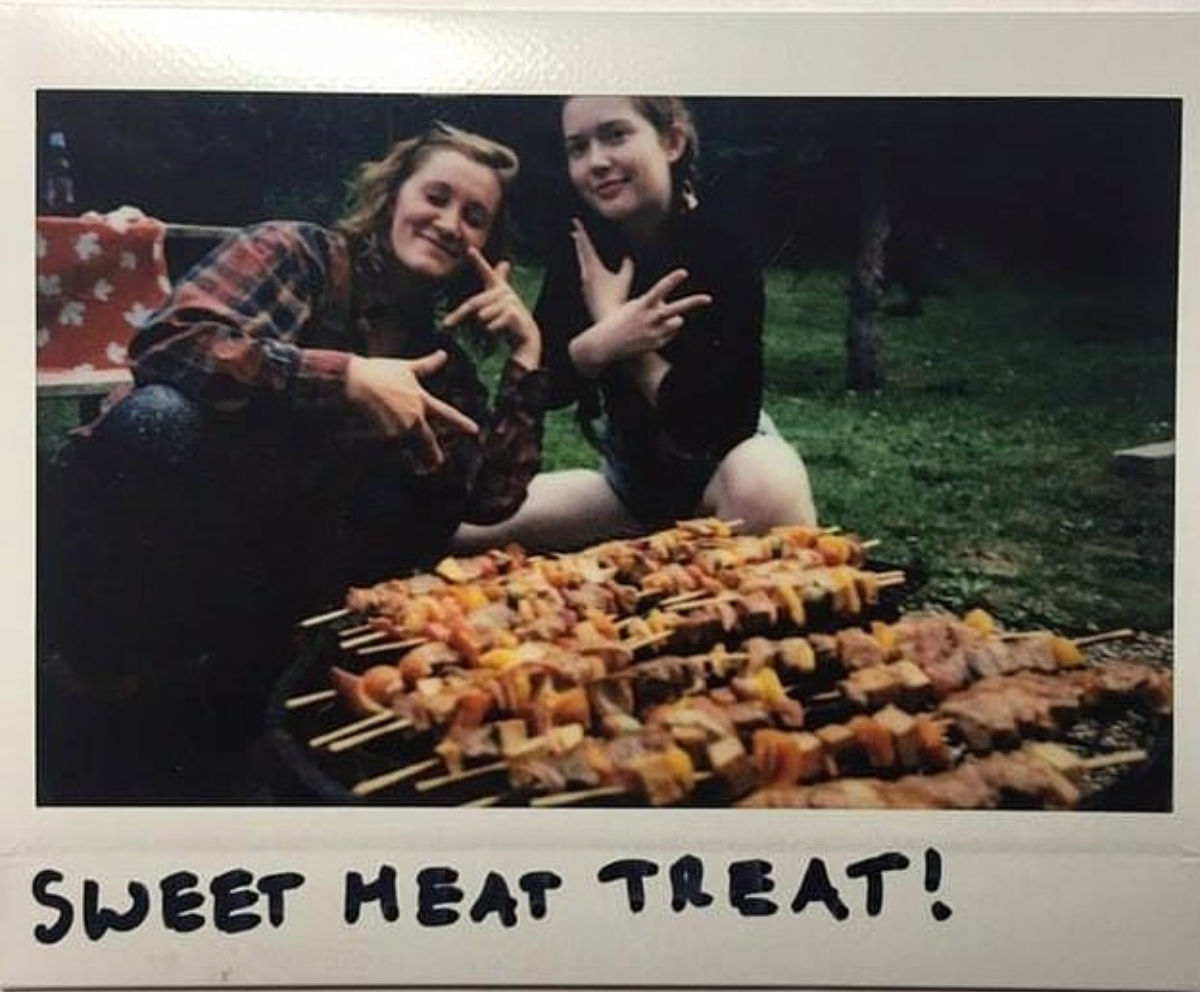 SWEET MEAT TREAT!